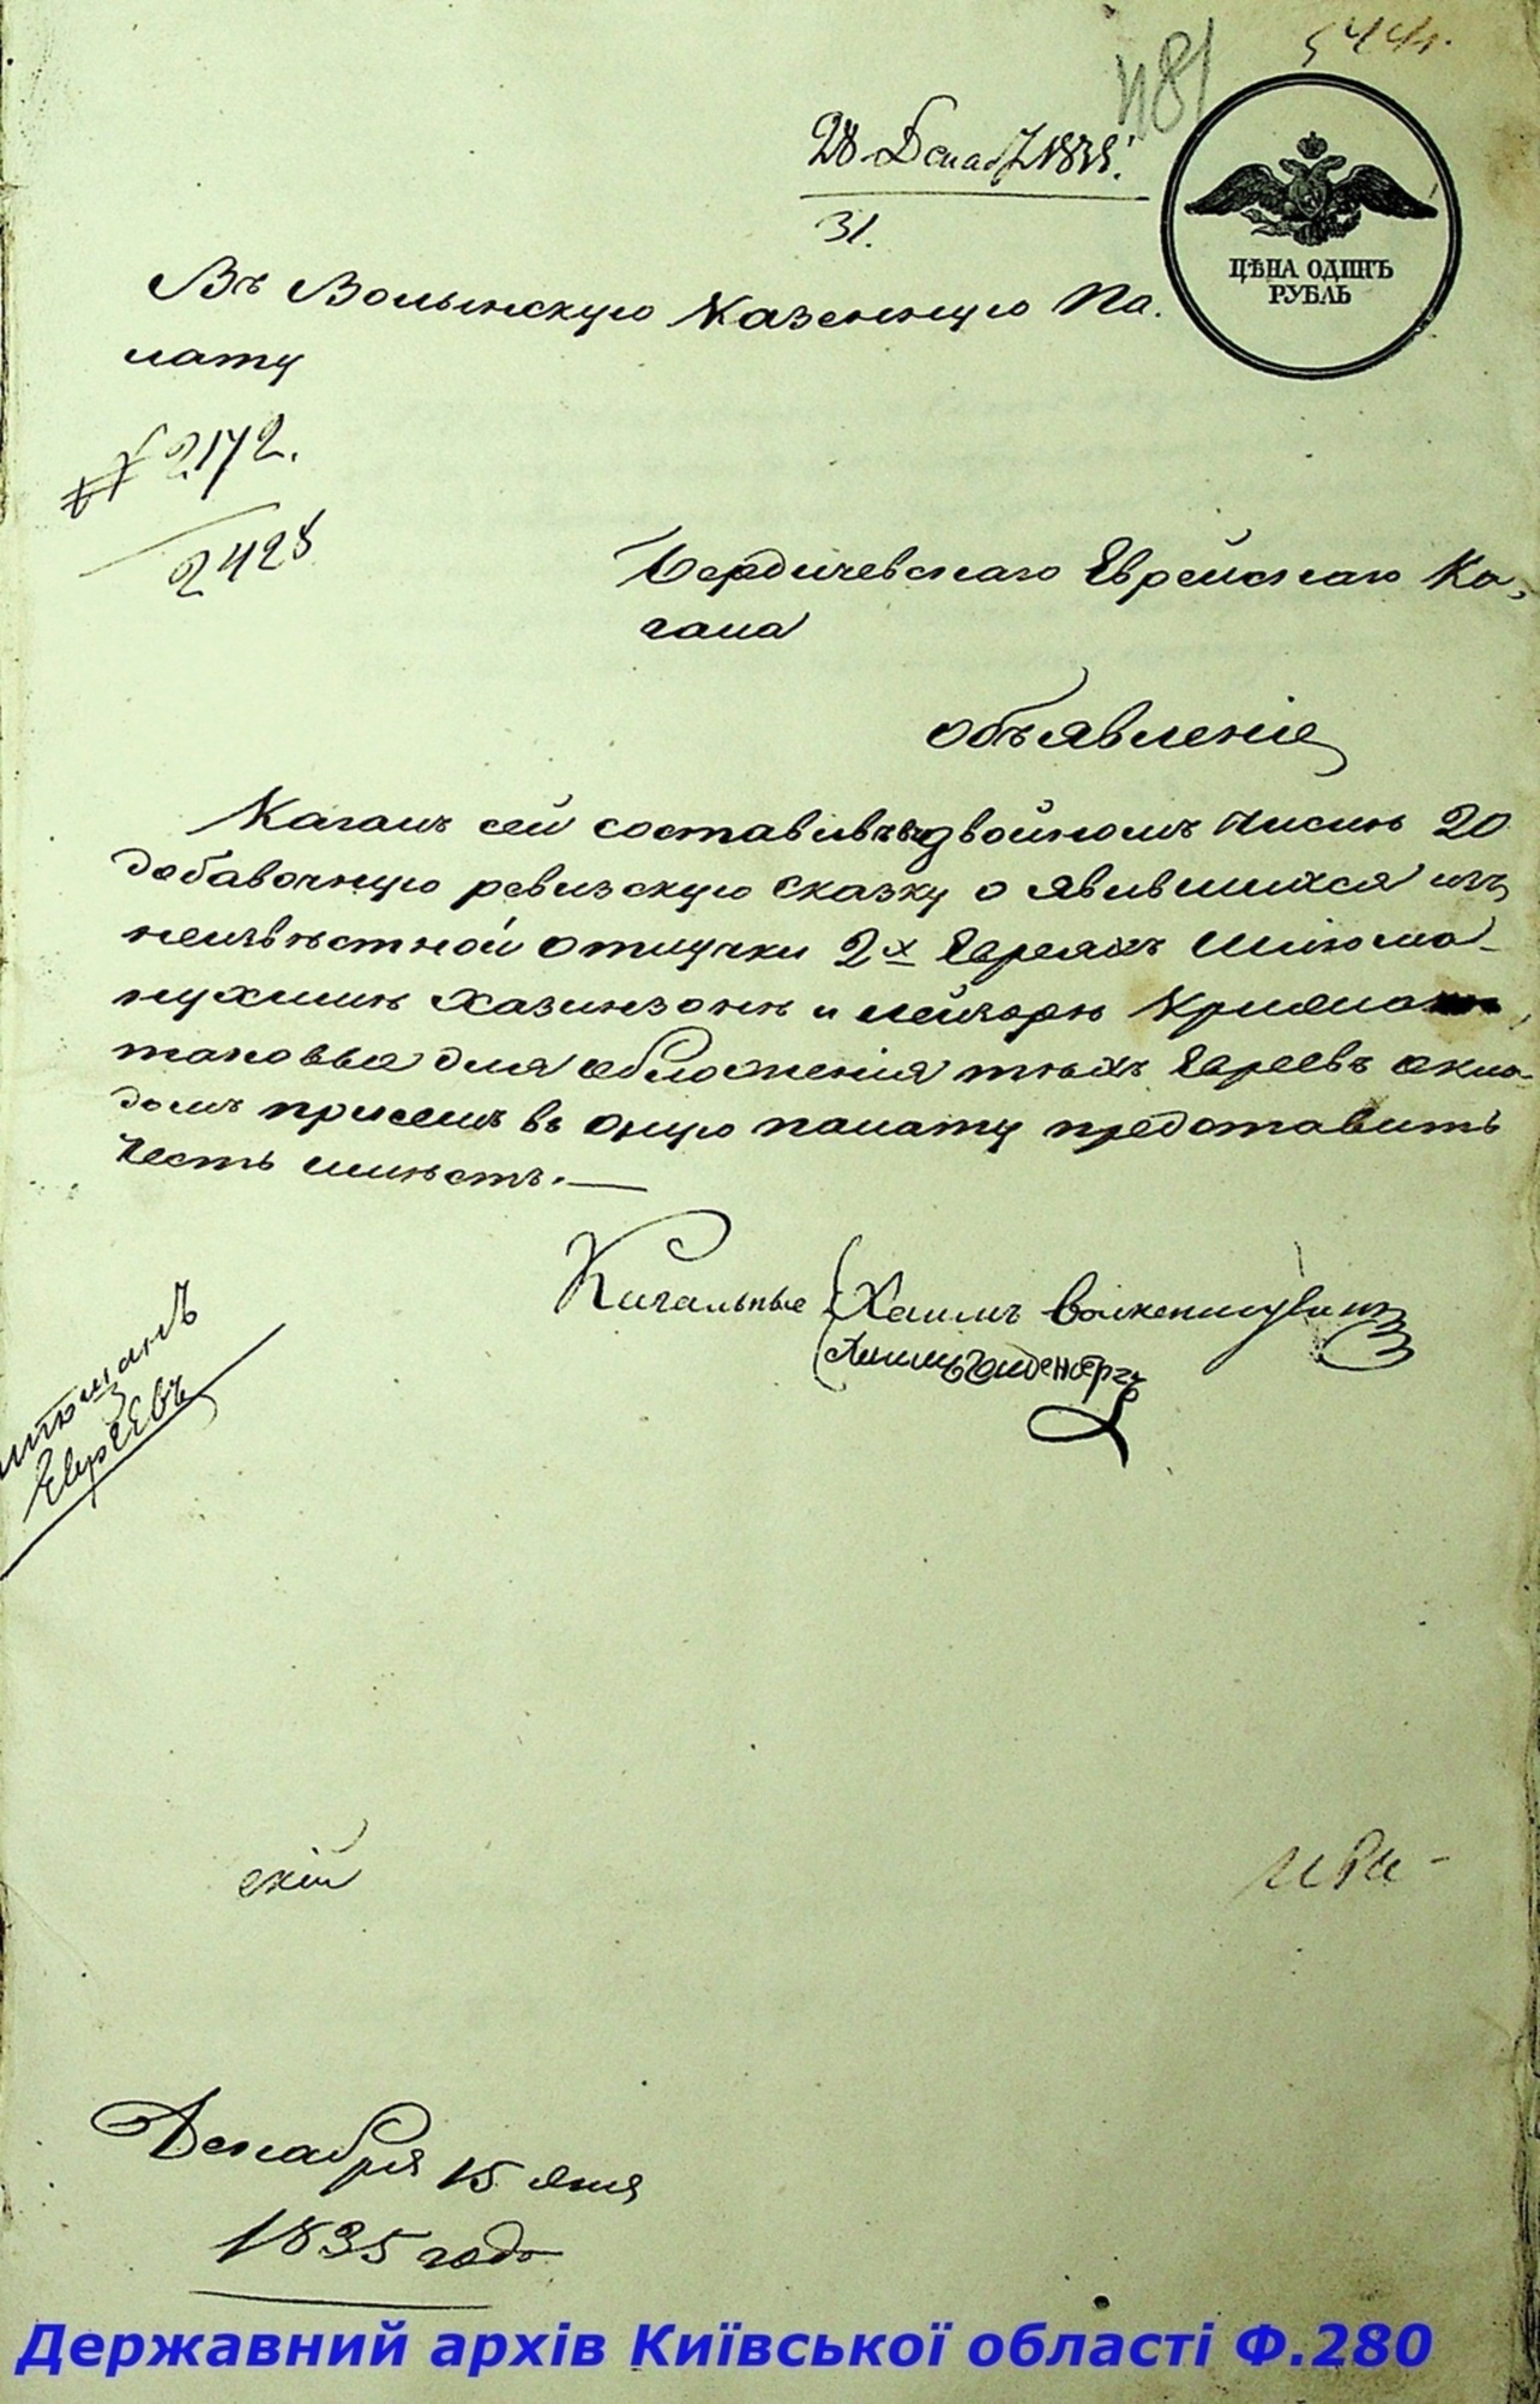 544
481
28 Декаб 1835.
31.
ЦѢНА ОДИНЪ
РУБЛЬ
Въ Волынскую Казенную Па-
лату
№ 2172.
2428
Бердичевскаго Еврейскаго Ка-
гала
объявленіе
Кагалъ сей составивъ въ двойномъ числѣ 20
добавочную ревизскую сказку о явившихся изъ
неизвѣстной отлучки 2х Евреяхъ Шлюма
Хазинзонѣ и Лейзорѣ
таковые для обложенія тѣхъ Евреевъ окла-
домъ присемъ въ оную палату представить
Честь имѣетъ.—
Кагальные Хаимъ
Декабря 15 дня
1835 года
Державний архів Київської області Ф.280